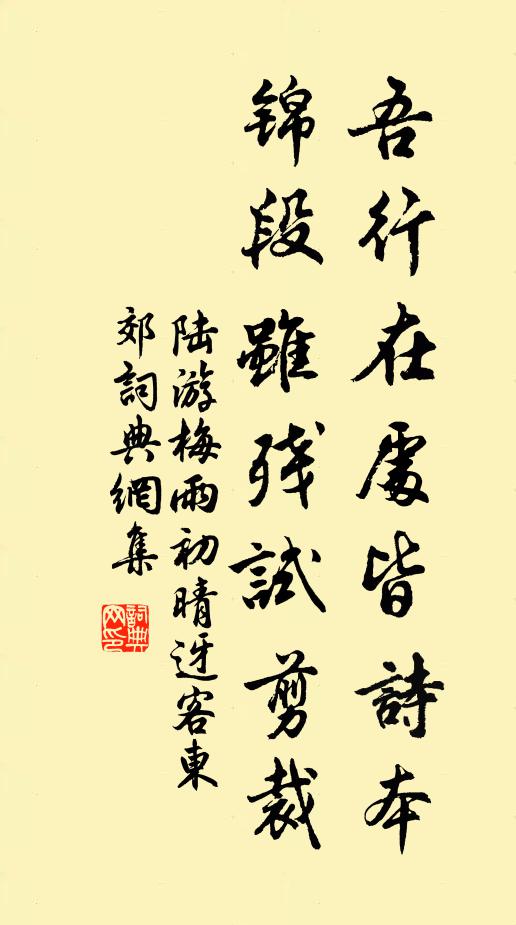 吾行在處皆詩本
锦段雖残試剪裁
陆游梅雨初晴迓客東
郊詞典網集
詞典
网印